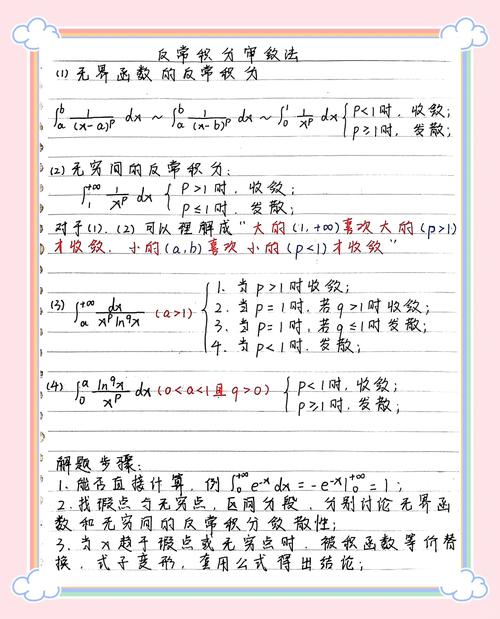 反常积分审敛法
(1) 无界函数的反常积分
∫_a^b 1/(x-a)^p dx ~ ∫_a^b 1/(x-b)^p dx ~ ∫_0^1 1/x^p dx { P<1时, 收敛;
P≥1时, 发散;
(2) 无穷间的反常积分:
∫_1^{+∞} 1/x^p dx { P>1时, 收敛;
P≤1时, 发散;
对于(1).(2)可以理解成“大的(1,+∞)喜欢大的(p>1)
才收敛. 小的(a,b)喜欢小的(p<1)才收敛”
(3) ∫_a^{+∞} dx/(x^p ln^q x) (a>1) { 1. 当p>1时收敛;
2. 当p=1时, 若q>1时收敛;
3. 当p=1时, 若q≤1时发散;
4. 当p<1时, 发散;
(4) ∫_0^a ln^q x/x^p dx (0<a<1且q>0) { p<1时, 收敛;
p≥1时, 发散;
解题步骤:
1. 能否直接计算, 例∫_0^{+∞} e^{-x} dx = -e^{-x}|_0^{+∞} = 1;
2. 找瑕点与无穷点, 区间分段, 分别讨论无界函
数和无穷间的反常积分敛散性;
3. 当x趋于瑕点或无穷点时, 被积函数等价替
换, 式子变形, 套用公式得出结论;